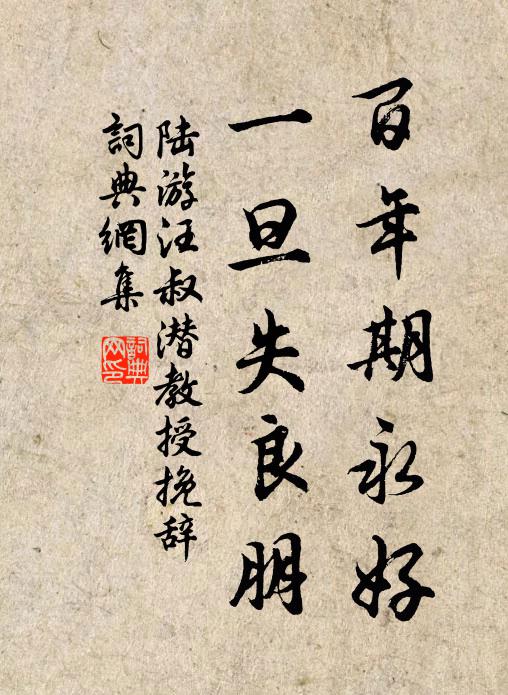 百年期永好
一旦失良朋
陆游汪叔潜教授挽辞
詞典網集
詞典网印